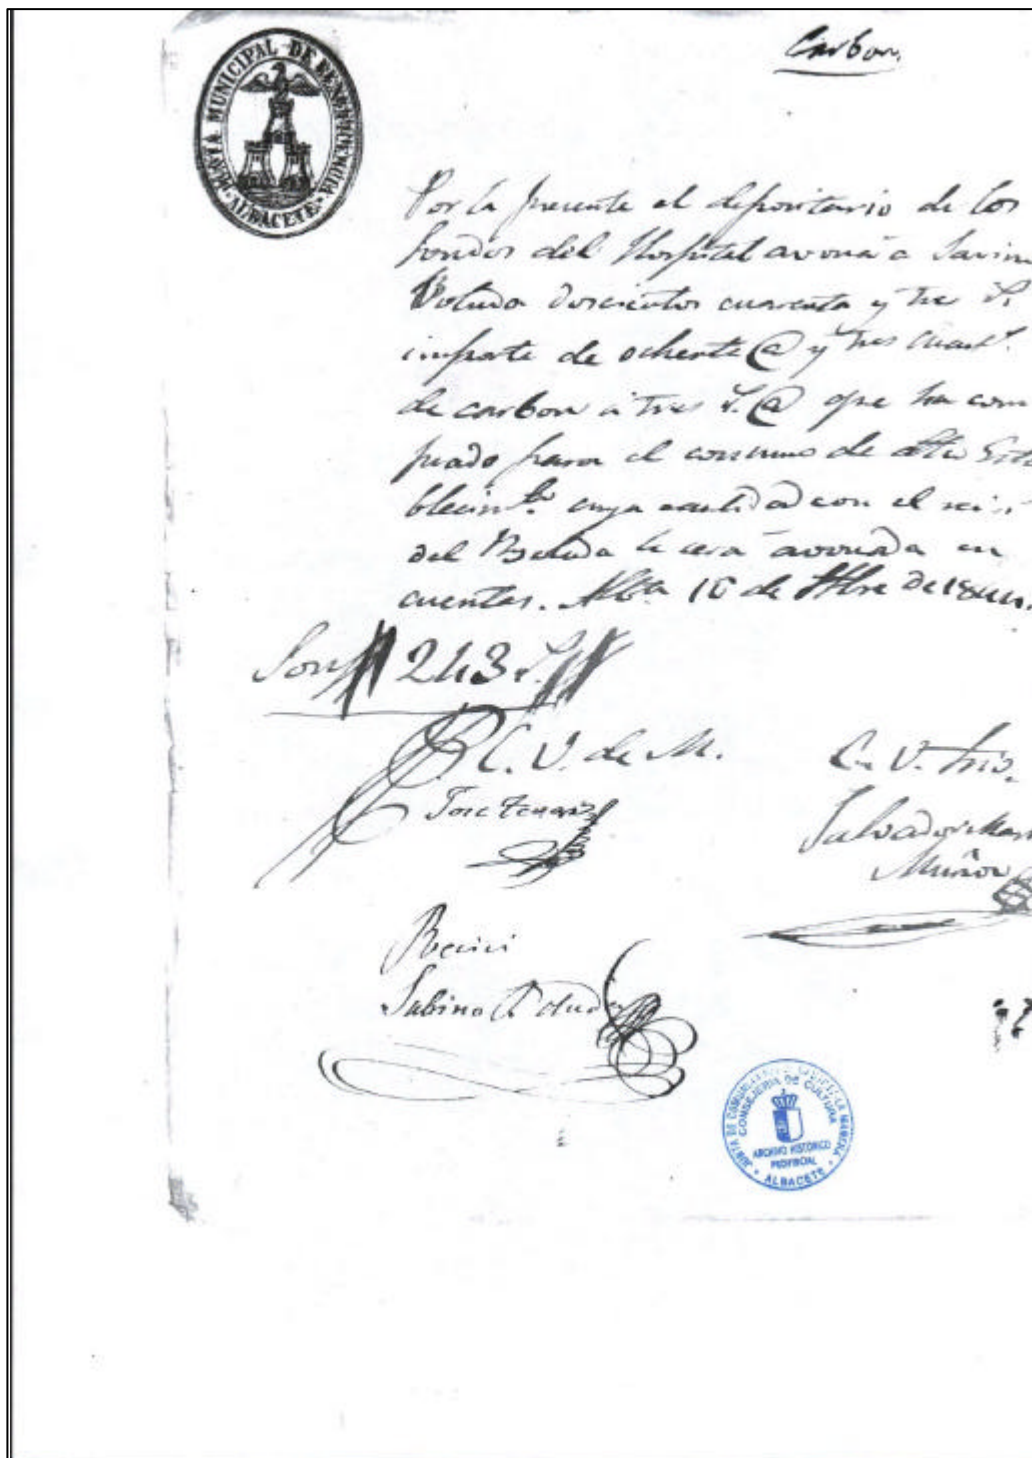 Carbon.
JUNTA MUNICIPAL DE BENEFICENCIA
ALBACETE
Por la presente el depositario de los
fondos del Hospital avonará a Savin
doscientos cuarenta y tres
importe de ochenta @ y tres cuart.
de carbon á tres r. @ que ha com
prado para el consumo de este Esta
blecim.to cuya cantidad con el reci
del le será avonada en
cuentas. Alb.te 16 de de
Son 243 r.
C. V. de M.
Jose
C. V. Srio.
Salvador
Muñoz
Recivi
Sabino
JUNTA DE COMUNIDADES DE CASTILLA-LA MANCHA
CONSEJERIA DE CULTURA
ARCHIVO HISTORICO
PROVINCIAL
ALBACETE